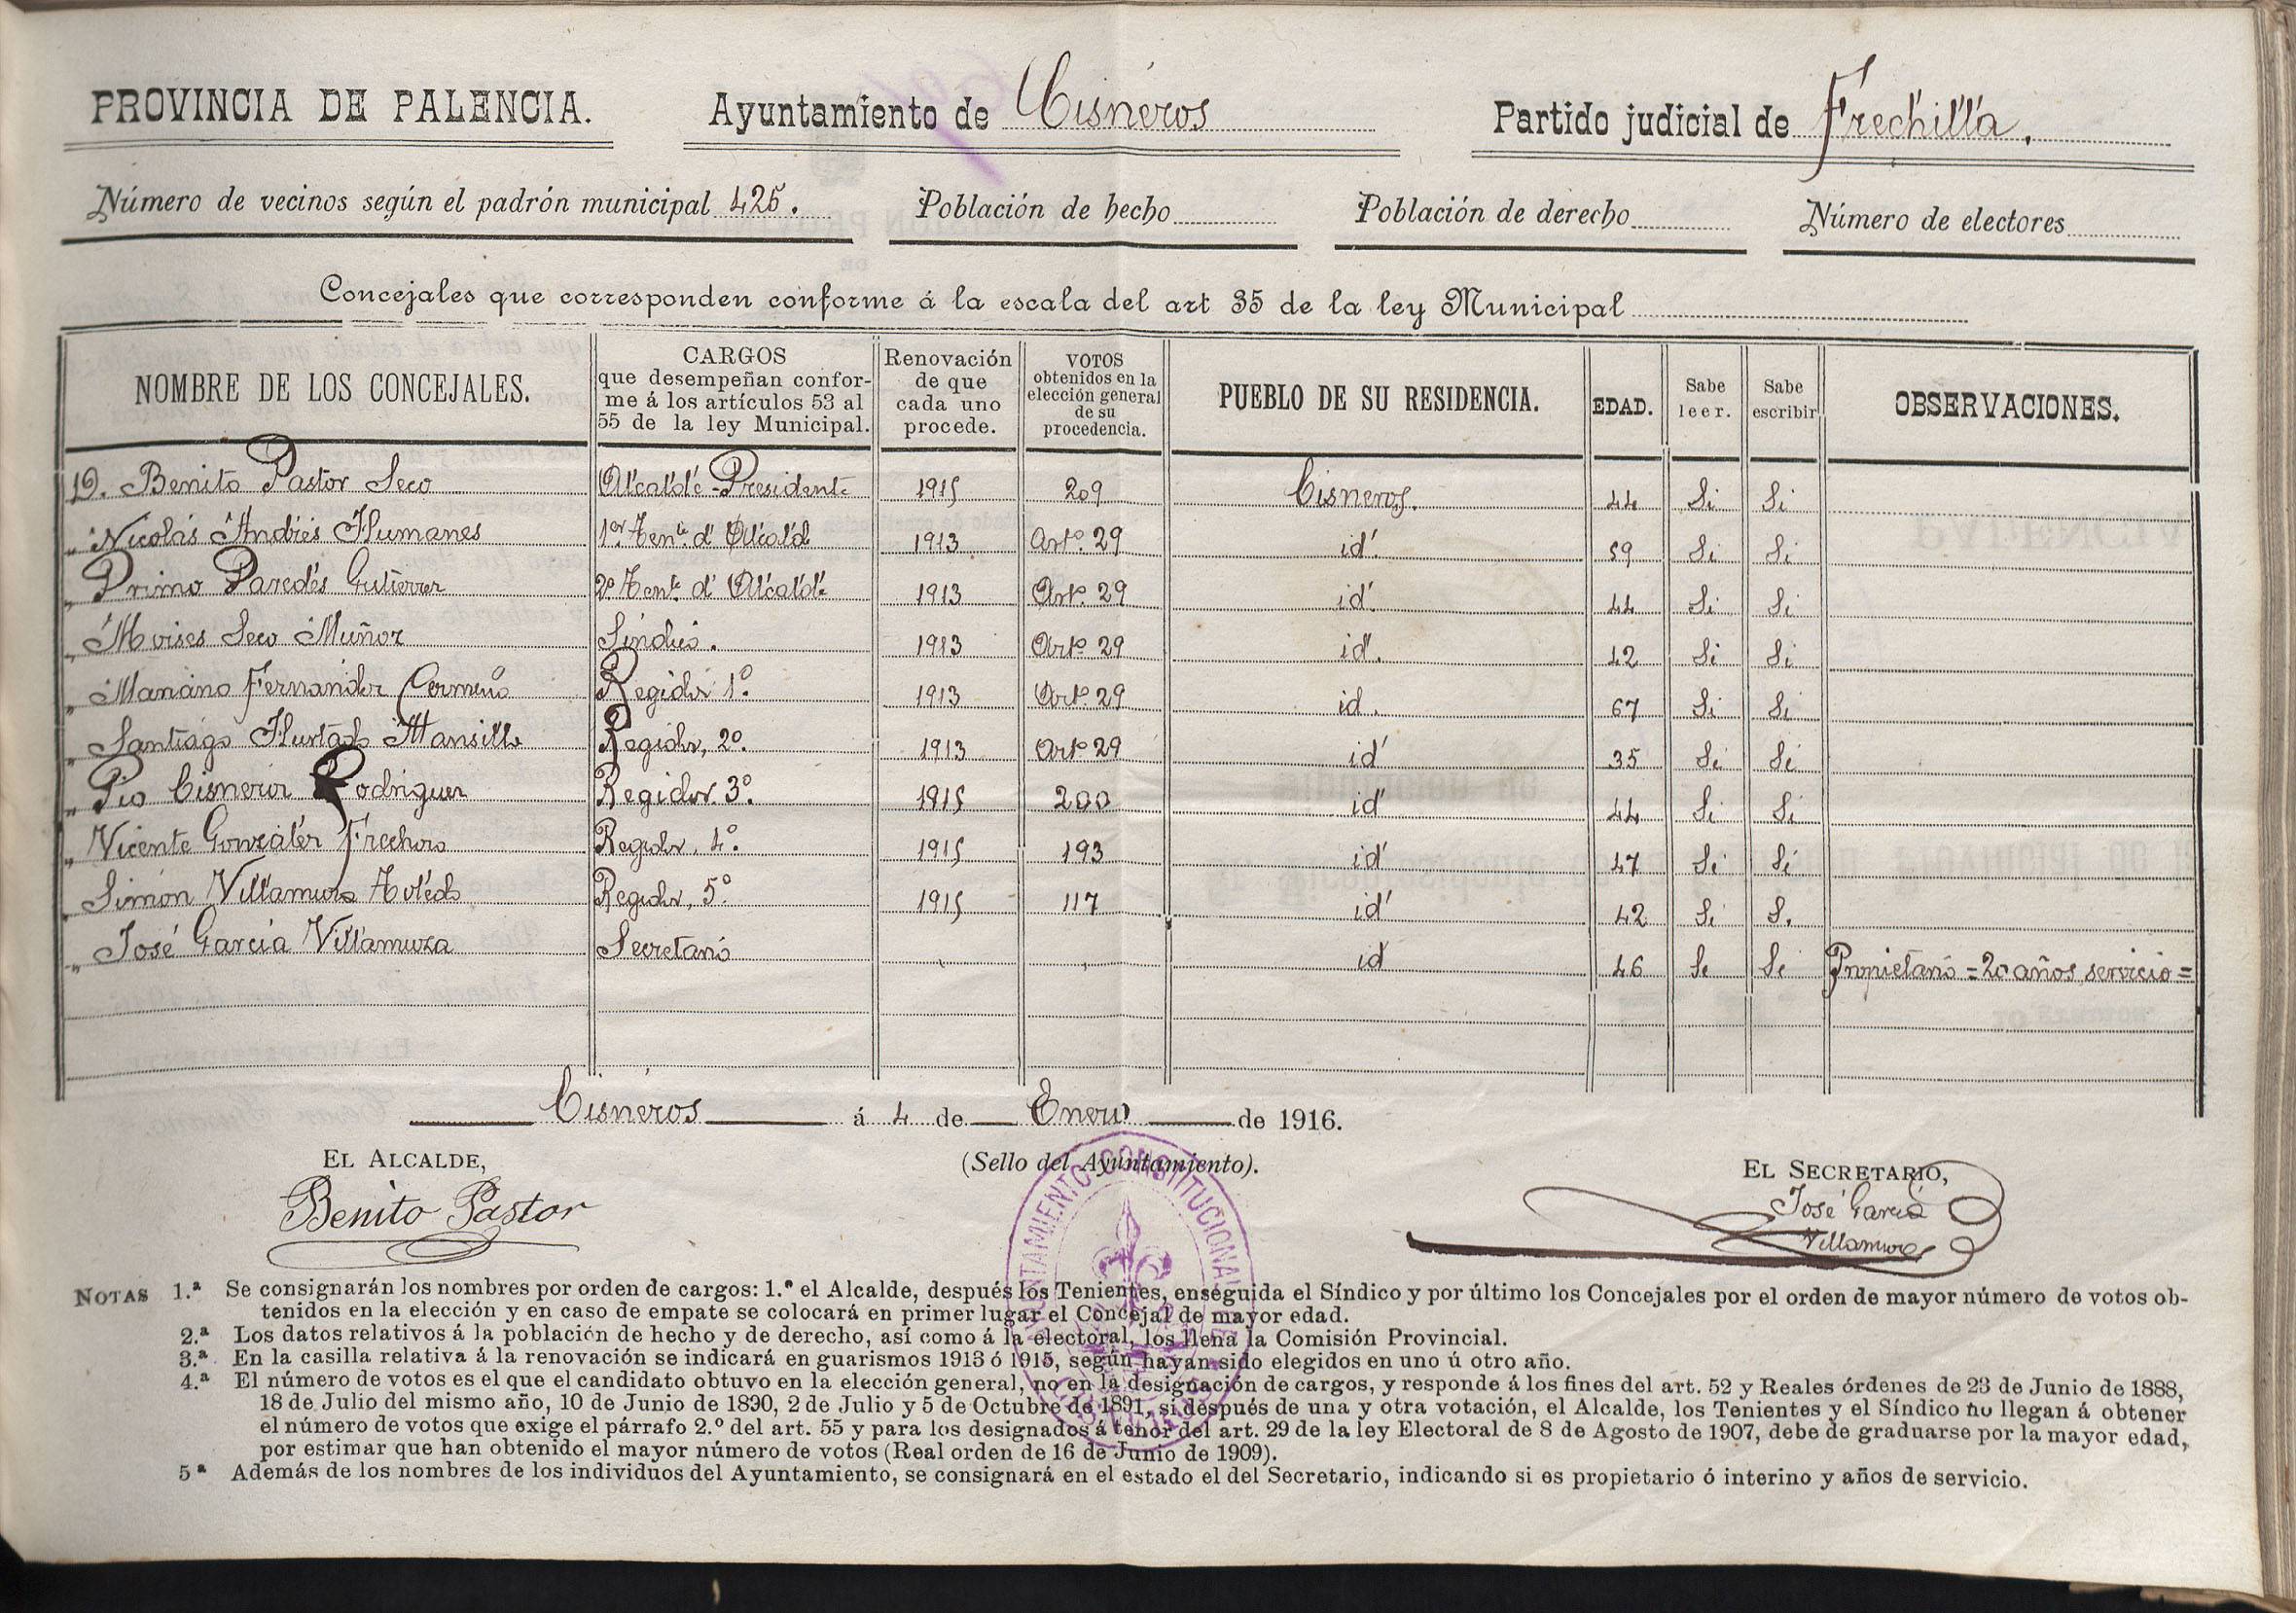 PROVINCIA DE PALENCIA. Ayuntamiento de Cisneros Partido judicial de Frechilla.
Número de vecinos según el padrón municipal 425. Población de hecho Población de derecho Número de electores
Concejales que corresponden conforme á la escala del art 35 de la ley Municipal
NOMBRE DE LOS CONCEJALES. CARGOS que desempeñan confor- me á los artículos 53 al 55 de la ley Municipal. Renovación de que cada uno procede. VOTOS obtenidos en la elección general de su procedencia. PUEBLO DE SU RESIDENCIA. EDAD. Sabe leer. Sabe escribir OBSERVACIONES.
D. Benito Pastor Seco Alcalde-Presidente 1915 209 Cisneros. 44 Si Si
" Nicolás Andrés Humanes 1er Tente d Alcalde 1913 Arto. 29 id. 59 Si Si
" Primo Paredes Gutierrez 2º Tente d Alcalde 1913 Arto. 29 id. 44 Si Si
" Moises Seco Muñoz Síndico. 1913 Arto 29 id. 42 Si Si
" Mariano Fernandez Cermeño Regidor 1º. 1913 Arto. 29 id. 67 Si Si
" Santiago Hurtado Mansilla Regidor, 2º. 1913 Arto 29 id 35 Si Si
" Pio Cisneros Rodriguez Regidor. 3º. 1915 200 id 44 Si Si
" Vicente González Frechoso Regidor, 4º. 1915 193 id 47 Si Si
" Simón Villamuza Toledo Regidor, 5º 1915 117 id 42 Si Si
" José García Villamuza Secretario " " id 46 Si Si Propietario = 20 años servicio =
Cisneros á 4 de Enero de 1916.
EL ALCALDE, (Sello del Ayuntamiento). EL SECRETARIO,
Benito Pastor José García
Villamuza
AYUNTAMIENTO CONSTITUCIONAL DE
NOTAS 1.ª Se consignarán los nombres por orden de cargos: 1.º el Alcalde, después los Tenientes, enseguida el Síndico y por último los Concejales por el orden de mayor número de votos ob-
tenidos en la elección y en caso de empate se colocará en primer lugar el Concejal de mayor edad.
2.ª Los datos relativos á la población de hecho y de derecho, así como á la electoral, los llena la Comisión Provincial.
3.ª En la casilla relativa á la renovación se indicará en guarismos 1913 ó 1915, según hayan sido elegidos en uno ú otro año.
4.ª El número de votos es el que el candidato obtuvo en la elección general, no en la designación de cargos, y responde á los fines del art. 52 y Reales órdenes de 23 de Junio de 1888,
18 de Julio del mismo año, 10 de Junio de 1890, 2 de Julio y 5 de Octubre de 1891, si después de una y otra votación, el Alcalde, los Tenientes y el Síndico no llegan á obtener
el número de votos que exige el párrafo 2.º del art. 55 y para los designados á tenor del art. 29 de la ley Electoral de 8 de Agosto de 1907, debe de graduarse por la mayor edad,
por estimar que han obtenido el mayor número de votos (Real orden de 16 de Junio de 1909).
5ª Además de los nombres de los individuos del Ayuntamiento, se consignará en el estado el del Secretario, indicando si es propietario ó interino y años de servicio.